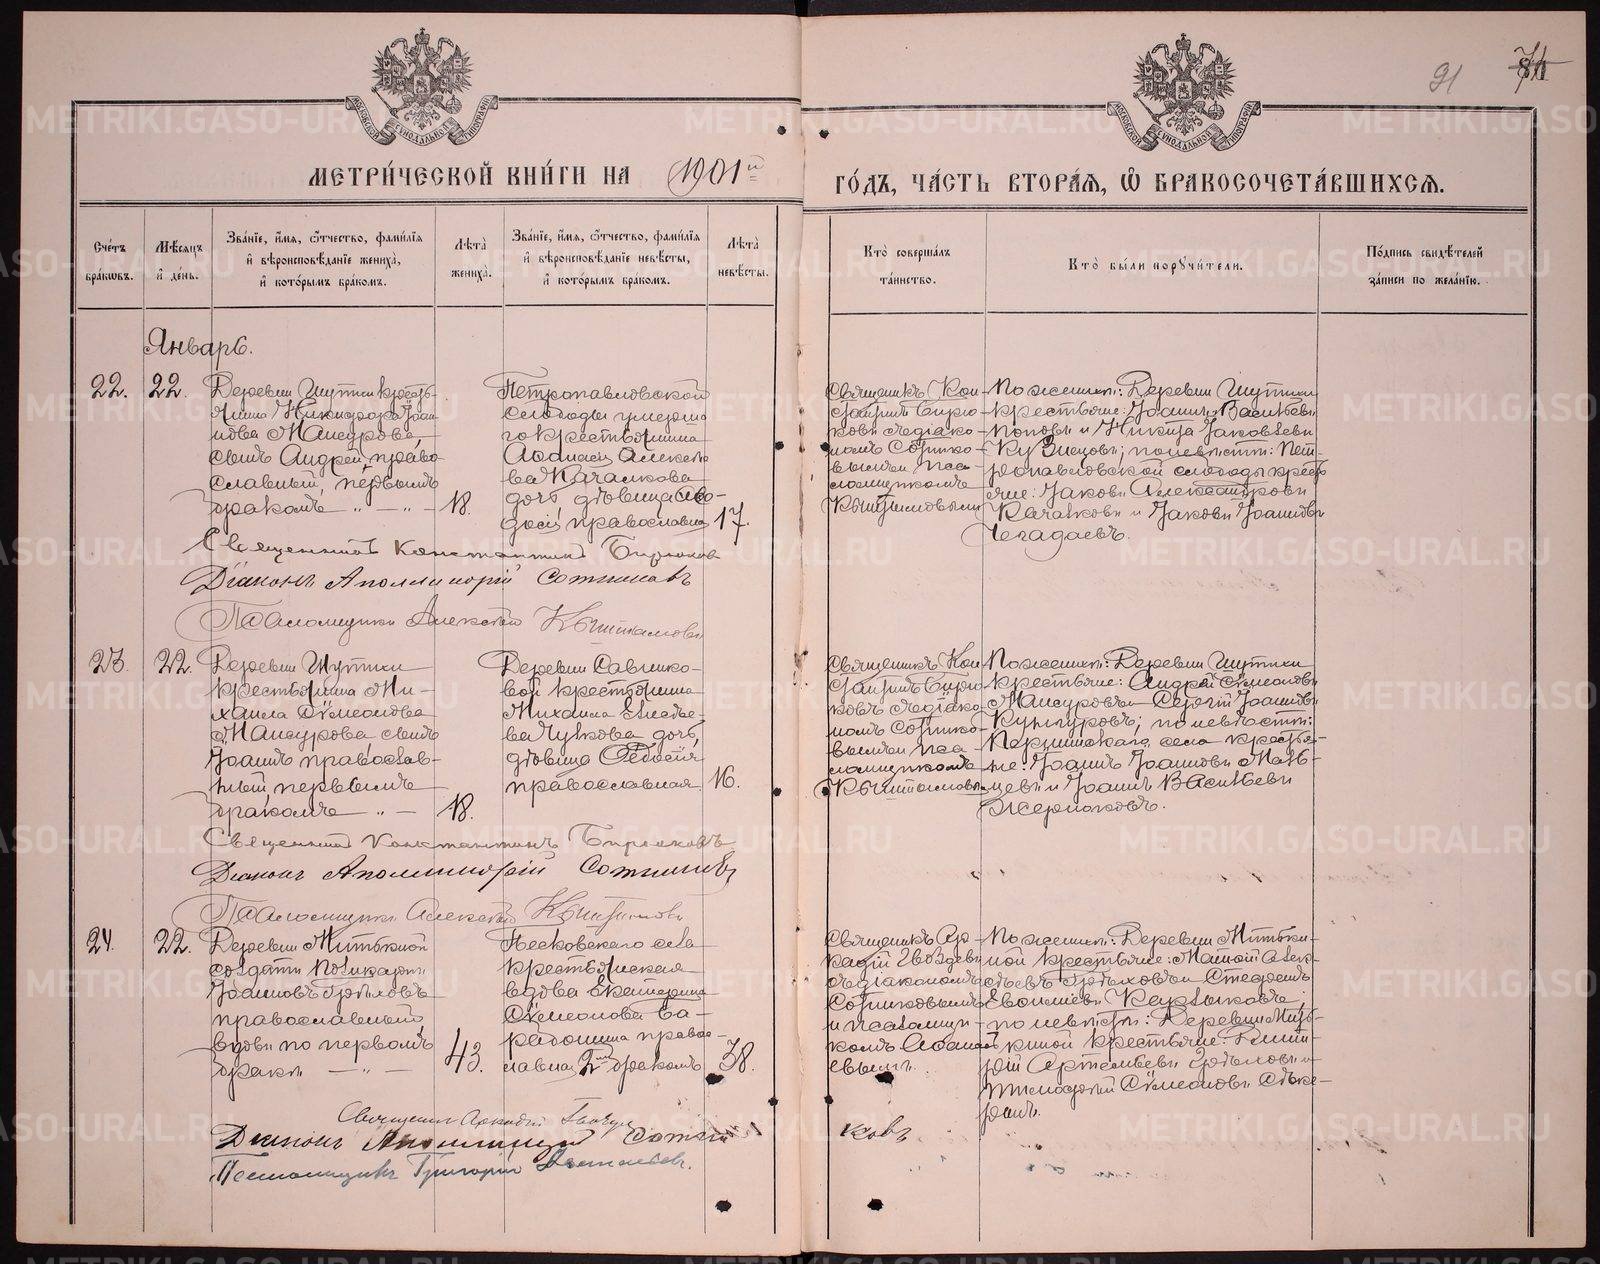 91
МЕТРИ́ЧЕСКОЙ КНИ́ГИ НА 1901й ГО́ДЪ, ЧА́СТЬ ВТОРА́Я, Ѽ БРАКОСОЧЕТА́ВШИХСЯ.
Сче́тъ бра́ковъ.
Мѣ́сяцъ и́ де́нь.
Зва́нїе, и́мя, ѻ́тчество, фами́лїя и́ вѣроисповѣ́данїе жениха̀, и́ кото́рымъ бра́комъ.
Лѣта̀ жениха̀.
Зва́нїе, и́мя, ѻ́тчество, фами́лїя и́ вѣроисповѣ́данїе невѣ́сты, и́ кото́рымъ бра́комъ.
Лѣта̀ невѣ́сты.
Кто̀ соверша́лъ та́инство.
Кто̀ бы́ли порꙋчи́тели.
По́дпись свидѣ́телей за́писи по жела́нїю.
Январь.
22.
22.
Деревни Шутихи крестья-
нина Никифора Іоан-
нова Мансурова,
сынъ Андрей, право-
славный, первымъ
бракомъ
18.
Петропавловской
слободы умерша-
го крестьянина
Аѳанасія Алексѣе-
ва Качалкова
дочь, дѣвица Ѳео-
досія, православная
17.
Священникъ Кон-
стантинъ Бирю-
ковъ съ діако-
номъ Сотнико-
вымъ и пса-
ломщикомъ
Кыштымовымъ
По женихѣ: Деревни Шутихи
крестьяне: Іоаннъ Васильевъ
Поповъ и Никита Іаковлевъ
Кузнецовъ; по невѣстѣ: Пет-
ропавловской слободы кресть-
яне: Іаковъ Александровъ
Качалковъ и Іаковъ Іоанновъ
Чегадаевъ.
Священникъ Константинъ Бирюковъ
Діаконъ Аполлинарій Сотниковъ
Псаломщикъ Алексѣй Кыштымовъ
23.
22.
Деревни Шутихи
крестьянина Ми-
хаила Сѵмеонова
Мансурова сынъ
Іоаннъ, православ-
ный, первымъ
бракомъ
18.
Деревни Савинко-
вой крестьянина
Михаила Елисѣе-
ва Чулкова дочь,
дѣвица
православная.
16.
Священникъ Кон-
стантинъ Бирю-
ковъ съ діако-
номъ Сотнико-
вымъ и пса-
ломщикомъ
Кыштымовымъ
По женихѣ: Деревни Шутихи
крестьяне: Андрей Сѵмеоновъ
Мансуровъ и Сергій Іоанновъ
Кунгуровъ; по невѣстѣ:
села крестья-
не: Іоаннъ Іоанновъ Маль-
цевъ и Іоаннъ Васильевъ
Жерноковъ.
Священникъ Константинъ Бирюковъ
Діаконъ Аполлинарій Сотниковъ
Псаломщикъ Алексѣй Кыштымовъ
24.
22.
Деревни Митькиной
солдатъ Поликарпъ
Іоанновъ Грѣховъ
православный,
вдовъ по первомъ
бракѣ
43.
Песковскаго села
крестьянская
вдова Екатерина
Сѵмеонова
правос-
лавная, 2мъ бракомъ
38.
Священникъ Ар-
кадій Гвоздевъ
съ діакономъ
Сотниковымъ
и псаломщи-
комъ Аѳанась-
евымъ.
По женихѣ: Деревни Митьки-
ной крестьяне: Матѳій Алек-
сѣевъ Грѣховъ и Стефанъ
по невѣстѣ: Деревни Мить-
киной крестьяне: Григо-
рій Артемьевъ Грѣховъ и
Сѵмеоновъ
Священникъ Аркадій Гвозде
Діаконъ Аполлинарій Сотни
ковъ
Псаломщикъ Григорій Аѳанасьевъ.
METRIKI.GASO-URAL.RU